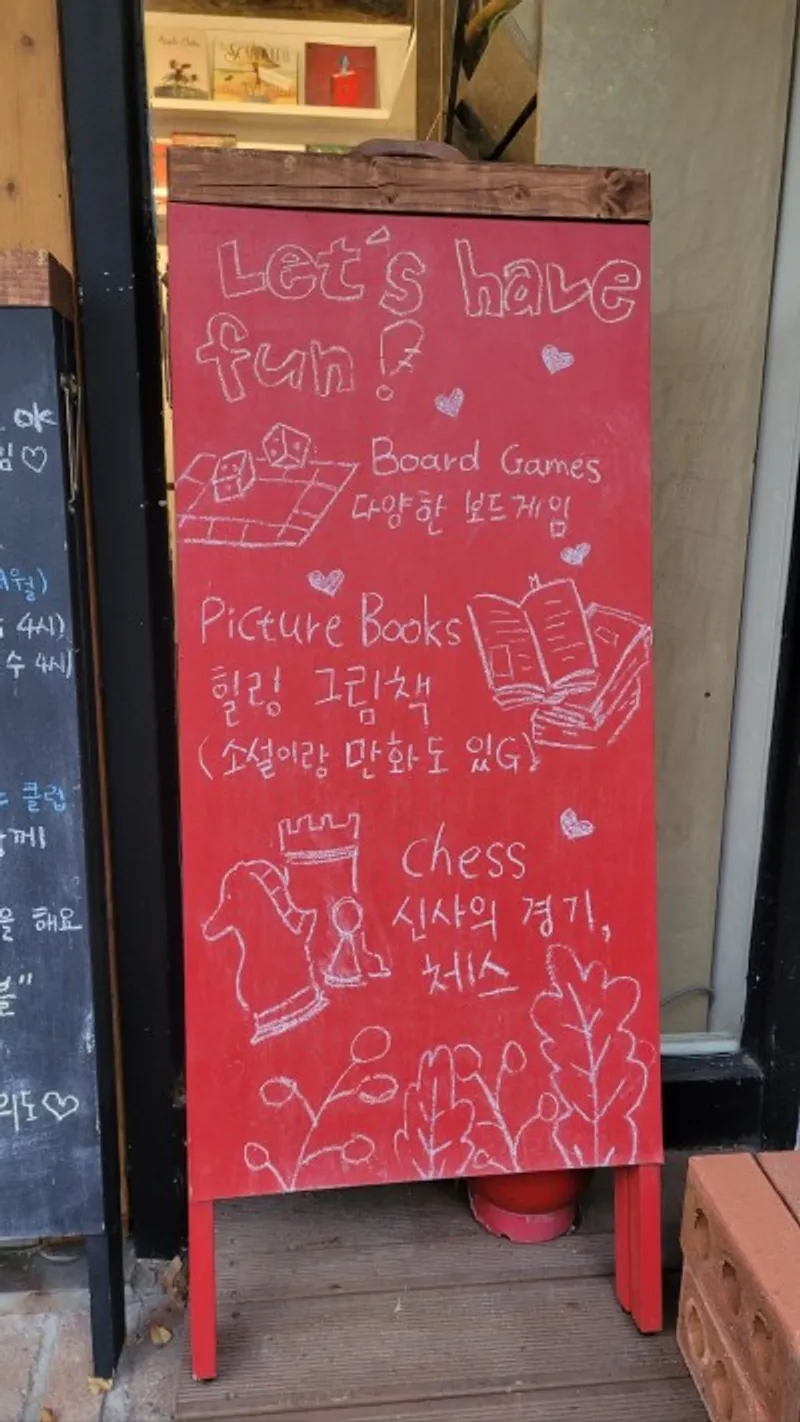 Let's have
fun!
Board Games
다양한 보드게임
Picture Books
힐링 그림책
(소설이랑 만화도 있G)
chess
신사의 경기,
체스
OK
4시)
수 4시)
클럽
께
해요